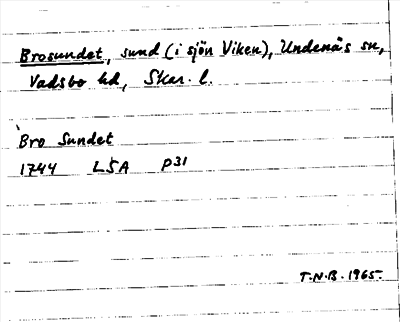 Brosundet, sund (i sjön Viken), Undenäs sn,
Vadsbo hd, Skar. l.
Bro Sundet
1744 LSA P31
T.N.B. 1965.